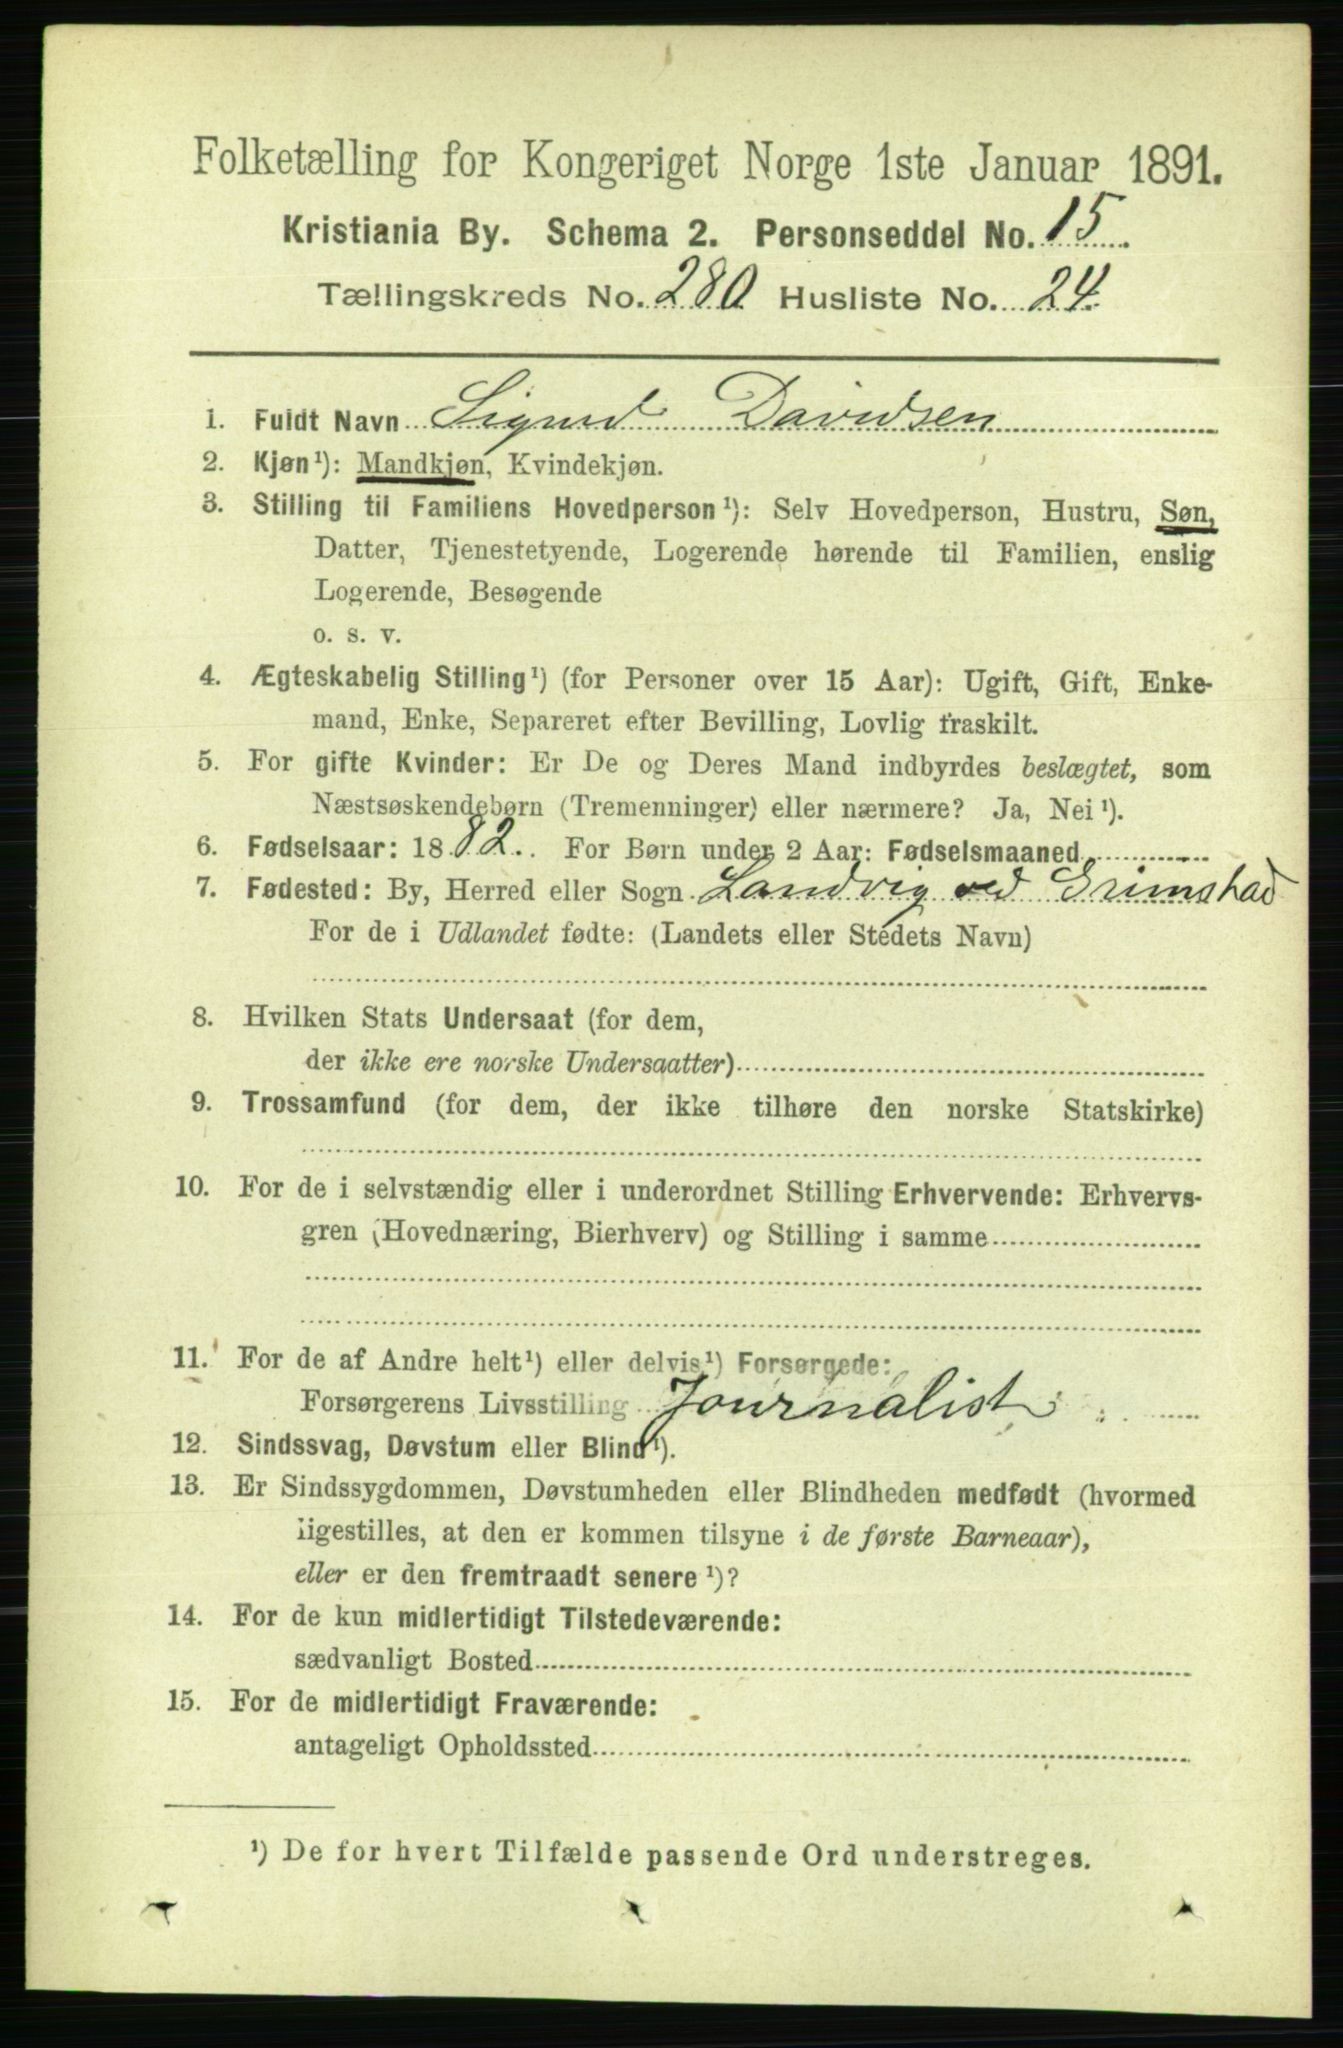 Folketælling for Kongeriget Norge 1ste Januar 1891.
Kristiania By. Schema 2. Personseddel No. 15
Tællingskreds No. 280 Husliste No. 24.
1. Fuldt Navn Sigurd Davidsen
2. Kjøn¹): Mandkjøn, Kvindekjøn.
3. Stilling til Familiens Hovedperson¹): Selv Hovedperson, Hustru, Søn,
Datter, Tjenestetyende, Logerende hørende til Familien, enslig
Logerende, Besøgende
o. s. v.
4. Ægteskabelig Stilling¹) (for Personer over 15 Aar): Ugift, Gift, Enke-
mand, Enke, Separeret efter Bevilling, Lovlig fraskilt.
5. For gifte Kvinder: Er De og Deres Mand indbyrdes beslægtet, som
Næstsøskendebørn (Tremenninger) eller nærmere? Ja, Nei¹).
6. Fødselsaar: 1882. For Børn under 2 Aar: Fødselsmaaned
7. Fødested: By, Herred eller Sogn Landvig ved Grimstad
For de i Udlandet fødte: (Landets eller Stedets Navn)
8. Hvilken Stats Undersaat (for dem,
der ikke ere norske Undersaatter)
9. Trossamfund (for dem, der ikke tilhøre den norske Statskirke)
10. For de i selvstændig eller i underordnet Stilling Erhvervende: Erhvervs-
gren (Hovednæring, Bierhverv) og Stilling i samme
11. For de af Andre helt¹) eller delvis¹) Forsørgede:
Forsørgerens Livsstilling Journalist
12. Sindssvag, Døvstum eller Blind¹).
13. Er Sindssygdommen, Døvstumheden eller Blindheden medfødt (hvormed
ligestilles, at den er kommen tilsyne i de første Barneaar),
eller er den fremtraadt senere¹)?
14. For de kun midlertidigt Tilstedeværende:
sædvanligt Bosted
15. For de midlertidigt Fraværende:
antageligt Opholdssted
¹) De for hvert Tilfælde passende Ord understreges.